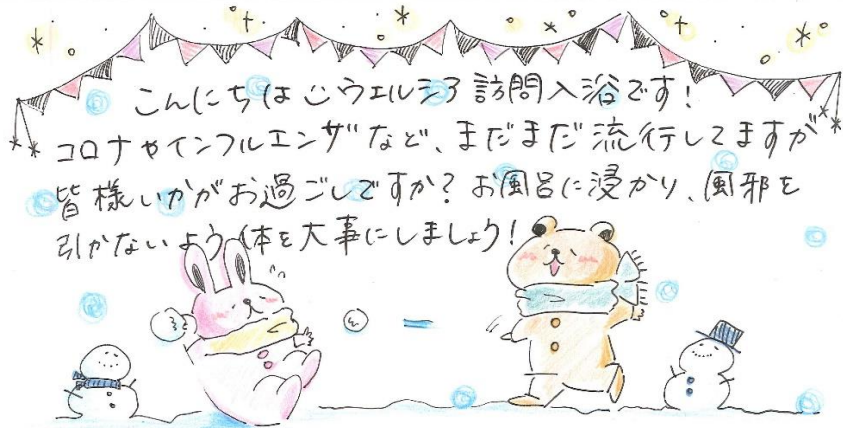 こんにちは ウエルシア訪問入浴です!
コロナやインフルエンザなど、まだまだ流行してますが
皆様いかがお過ごしですか? お風呂に浸かり、風邪を
引かないよう体を大事にしましょう!